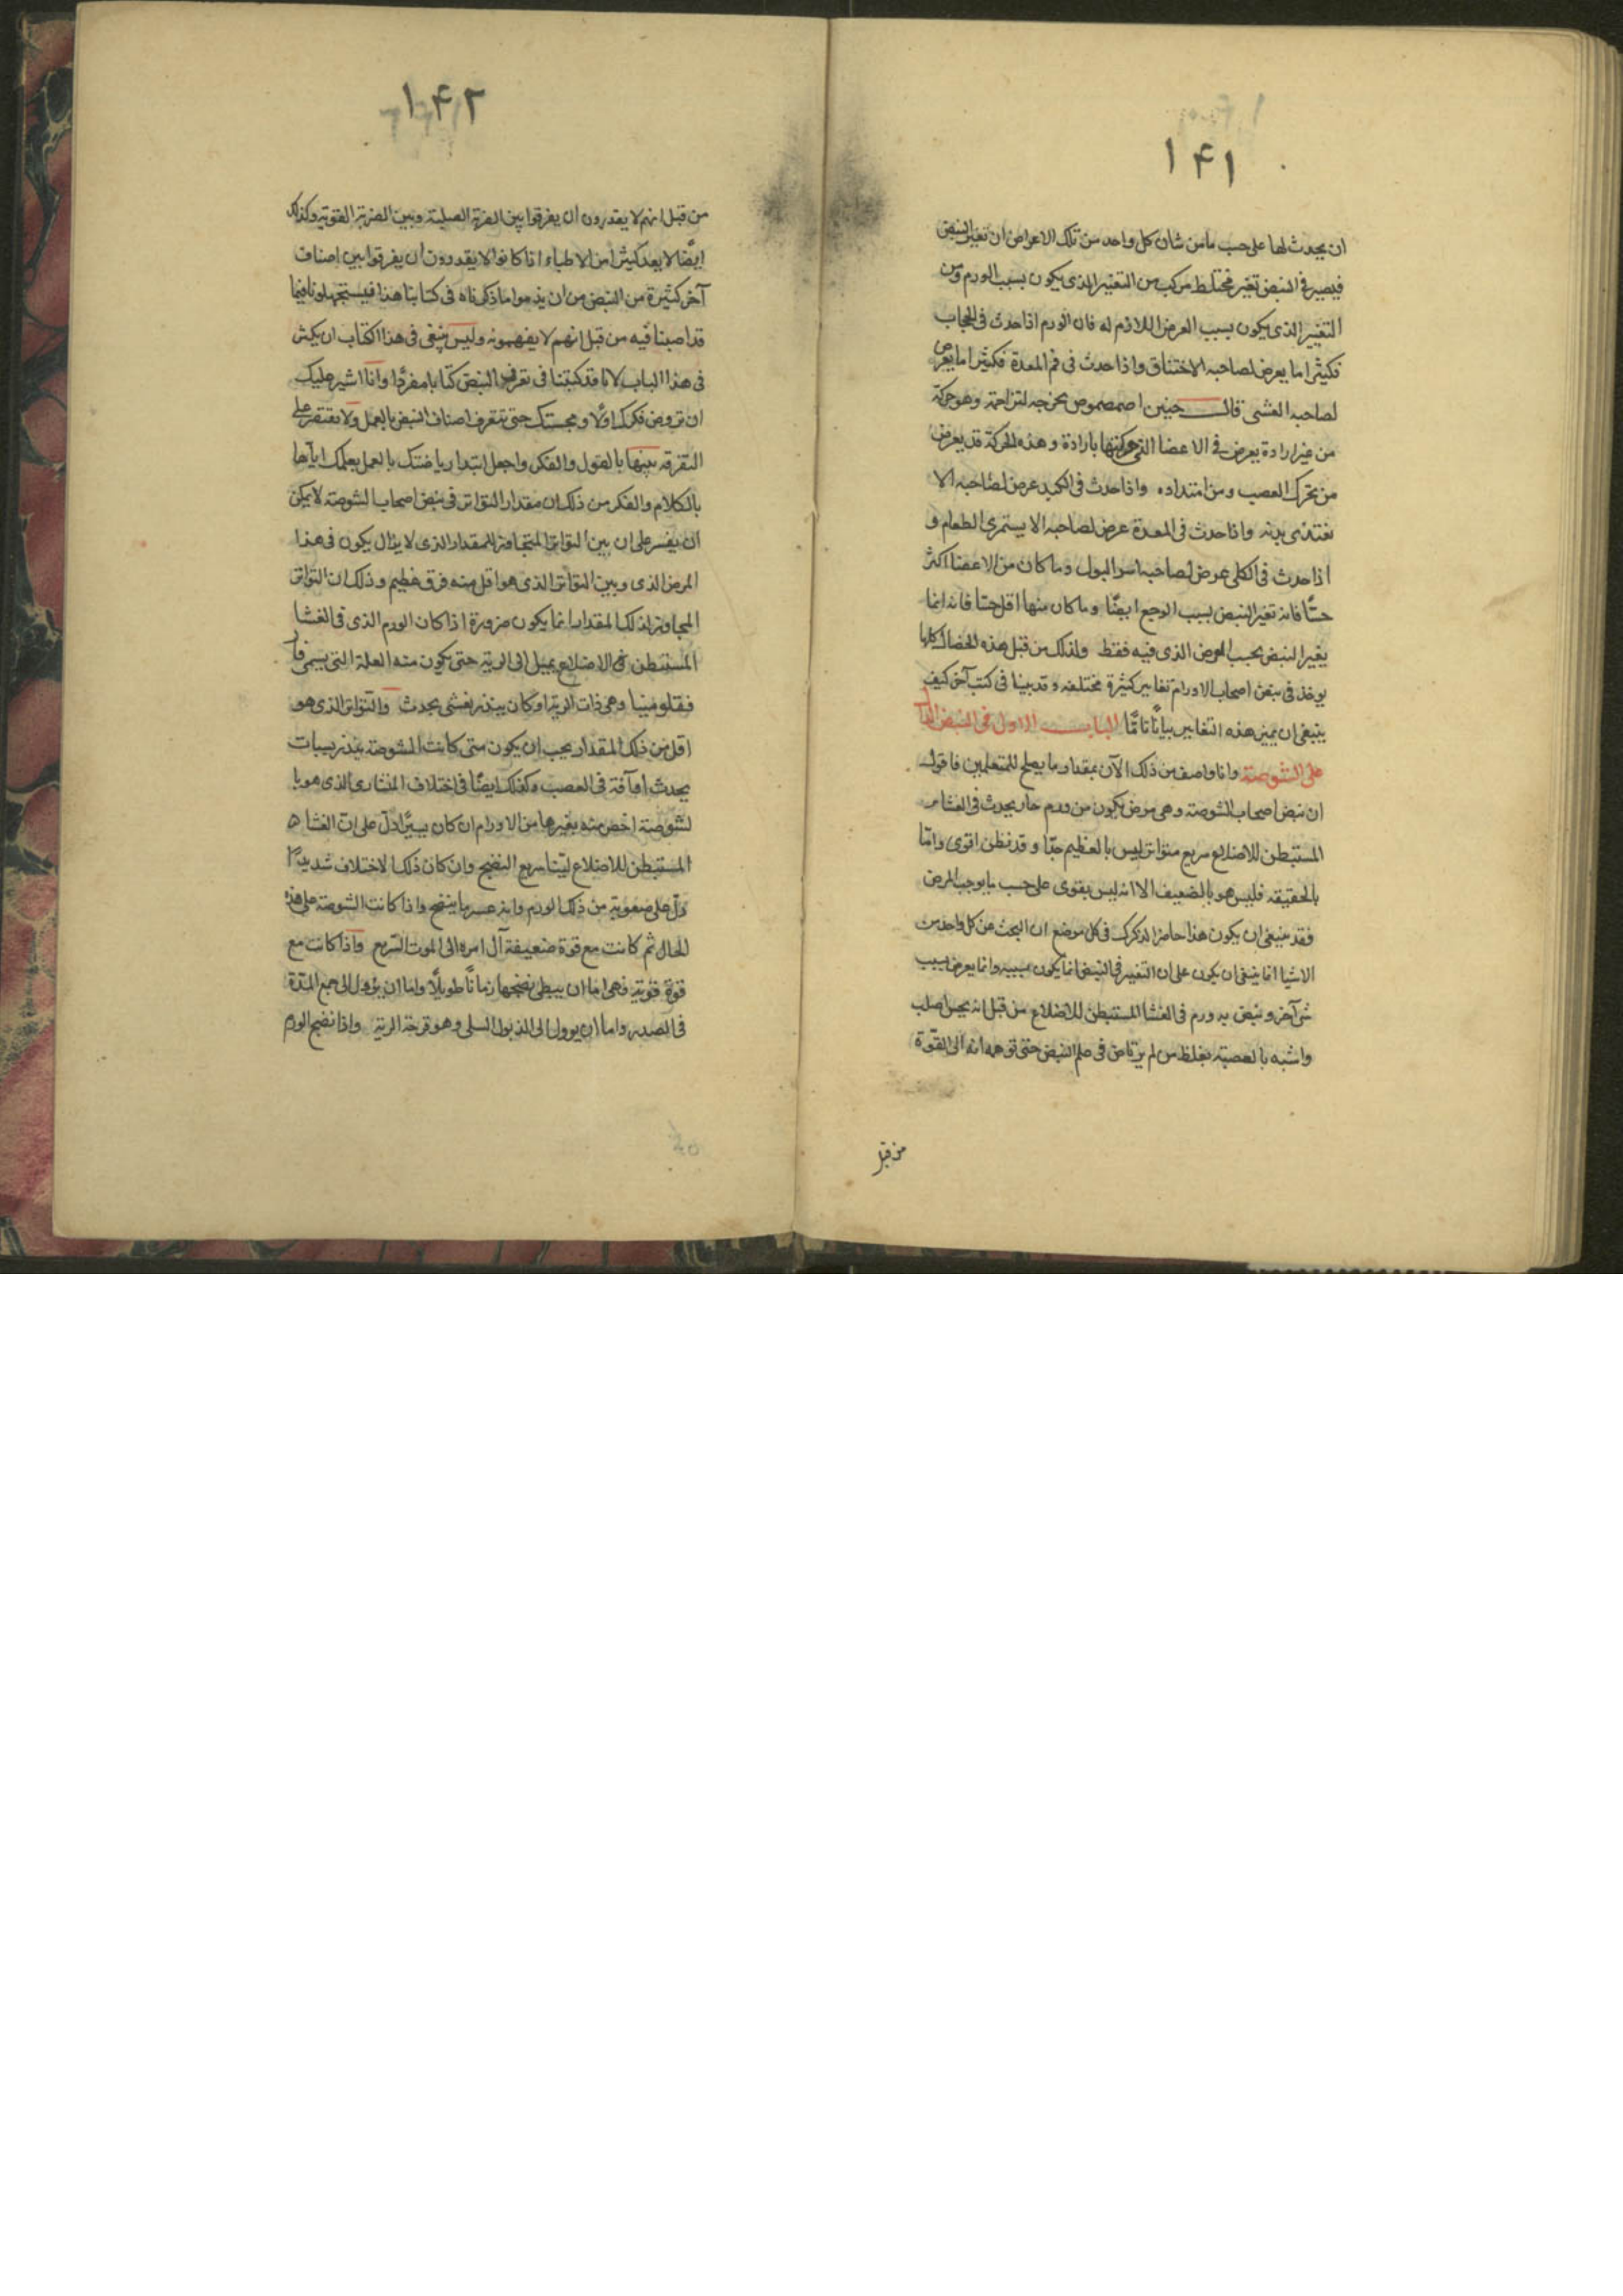 ١۴١
ان يحدث لها على حسب ما من شان كل واحد من تلك الاعراض ان تغير النبض
فيصير فى النبض تغير مختلط مركب من التغير الذى يكون بسبب الورم ومن
التغيير الذى يكون بسبب العرض اللازم له فان الورم اذا حدث فى الحجاب
فكثيرا ما يعرض لصاحبه الاختناق واذا حدث فى فم المعدة فكثيرا ما يعرض
لصاحبه الغشى قال حنين وهو حركة
من غير ارادة يعرض فى الاعضا التى حركتها بارادة و هذه الحركة قد يعرض
من تحرك العصب و من امتداده واذا حدث فى الكبد عرض لصاحبه الا
يغتذى بدنه واذا حدث فى المعدة عرض لصاحبه الا يستمرى الطعام و
اذا حدث فى الكلى عرض لصاحبه اسر البول وما كان من الاعضا اكثر
حسًّا فانه تغير النبض بسبب الوجع ايضًا وما كان منها اقل حسّا فانه انما
يغير النبض بحسب المرض الذى فيه فقط ولذلك من قبل هذه الخصال كلها
يوخذ فى نبض اصحاب الاورام تغايير كثيرة مختلفه و قد بينا فى كتب آخر كيف
ينبغى ان يميز هذه التغايير بيانًا تامًّا البابــــ الاول فى النبض الدال
على الشوصة وانا واصف من ذلك الآن بمقدار ما يصلح للمتعلمين فاقول
ان نبض اصحاب الشوصة وهى مرض يكون من ورم حار يحدث فى الغشاء
المستبطن للاضلاع سريع متواتر ليس بالعظيم جدّا و قد نظن اقوى وامّا
بالحقيقه فليس هو بالضعيف الا انه ليس بقوى على حسب ما يوجب المرض
فقد ينبغى ان يكون هذا حاضرا لذكرك فى كل موضع ان البحث عن كل واحد من
الاشيا انما ينبغى ان يكون على ان التغير فى النبض انما يكون بسببه وانما يعرض بسبب
شى آخر و نبض به ورم فى الغشا المستبطن للاضلاع من قبل انه يحس اصلب
واشبه بالعصبية يغلط من لم يرتاض فى علم النبض حتى توهمه انه الى القوّة
من قبل
١۴٢
من قبل انهم لا يقدرون ان يفرقوا بين الضربة الصلبة وبين الضربة القوية وكذلك
ايضًا لا يعد كثيرا من الاطباء اذا كانوا لا يقدرون ان يفرقوا بين اصناف
آخر كثيرة من النبض من ان يذموا ما ذكرناه فى كتابنا هذا فيستجهلونا فيما
قد اصبنا فيه من قبل انهم لا يفهمونه وليس ينبغى فى هذا الكتاب ان يكثر
فى هذا الباب لانا قد كتبنا فى تعرف النبض كتابا مفردًا وانا اشير عليك
ان تروض فكرك اولًا و مجستك حتى تتعرف اصناف النبض بالعمل ولا تقتصر على
التفرقه بينها بالقول والفكر واجعل ابتدا رياضتك بالعمل بعلمك اياها
بالكلام والفكر من ذلك ان مقدار التواتر فى نبض اصحاب الشوصة لا يمكن
ان يفسر على ان بين التواتر المتجاوز للمقدار الذى لا يزال يكون فى هذا
المرض الذى وبين التواتر الذى هو اقل منه فرق عظيم وذلك ان التواتر
المجاوز لذلك المقدار انما يكون ضرورة اذا كان الورم الذى فى الغشا
المستبطن فى الاضلاع يميل الى الرية حتى يكون منه العلة التى يسمى فار
فقلومينا وهى ذات الرية او كان ينذر بغشى يحدث والتواتر الذى هو
اقل من ذلك المقدار يجب ان يكون متى كانت الشوصة ينذر بسبات
يحدث او آفة فى العصب وكذلك ايضًا فى اختلاف المنشارى الذى هو با
لشوصة اخص منه بغيرها من الاورام ان كان يسيرًا دلّ على انّ الغشاء
المستبطن للاضلاع ليّنا سريع النضج وان كان ذلك الاختلاف شديدًا
دلّ على صعوبة من ذلك الورم وانه عسر ما ينضج واذا كانت الشوصة على هذه
الحال ثم كانت مع قوة ضعيفة آل امره الى الموت السّريع واذا كانت مع
قوة قوية فهى اما ان يبطى نضجها زمانًا طويلًا واما ان يؤول الى جمع المدّة
فى الصدر واما ان يوول الى الذبول السلى وهو قرحة الرية واذا نضج الورم